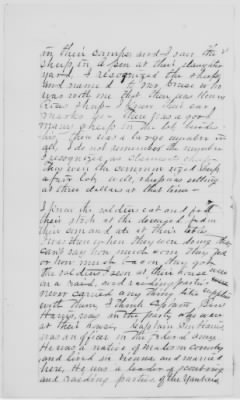 in their camps and I saw the
sheep in a pen at their slaughter
yard. I recognized the sheep
and named it to Mr. Cruse who
was with me that them was Henry
sheep - I knew that ear
marks for there was a good
many sheep in the lot besides
his, there was a large number in
all, I do not remember the number
I recognized as sheep
They were the common sized sheep
a fair lot, well, sheep was selling
at three dollars at that time -
I know the soldiers eat and fed
their stock at the deceased
him and ate at their table
I was there when they were doing this
can't say how much corn They fed
or how much bacon they got
the soldiers I seen at their house were
on a raid, and raiding parties were
never carried any thing like supplies
with them. I think Captain Ben
Harris was in the party who were
at their house, Captain Ben Harris
was an officer in the Federal army
He was a native of Madison county
and lived in Vienna and married
here. He was a leader of scouting
and raiding parties of the Yankees